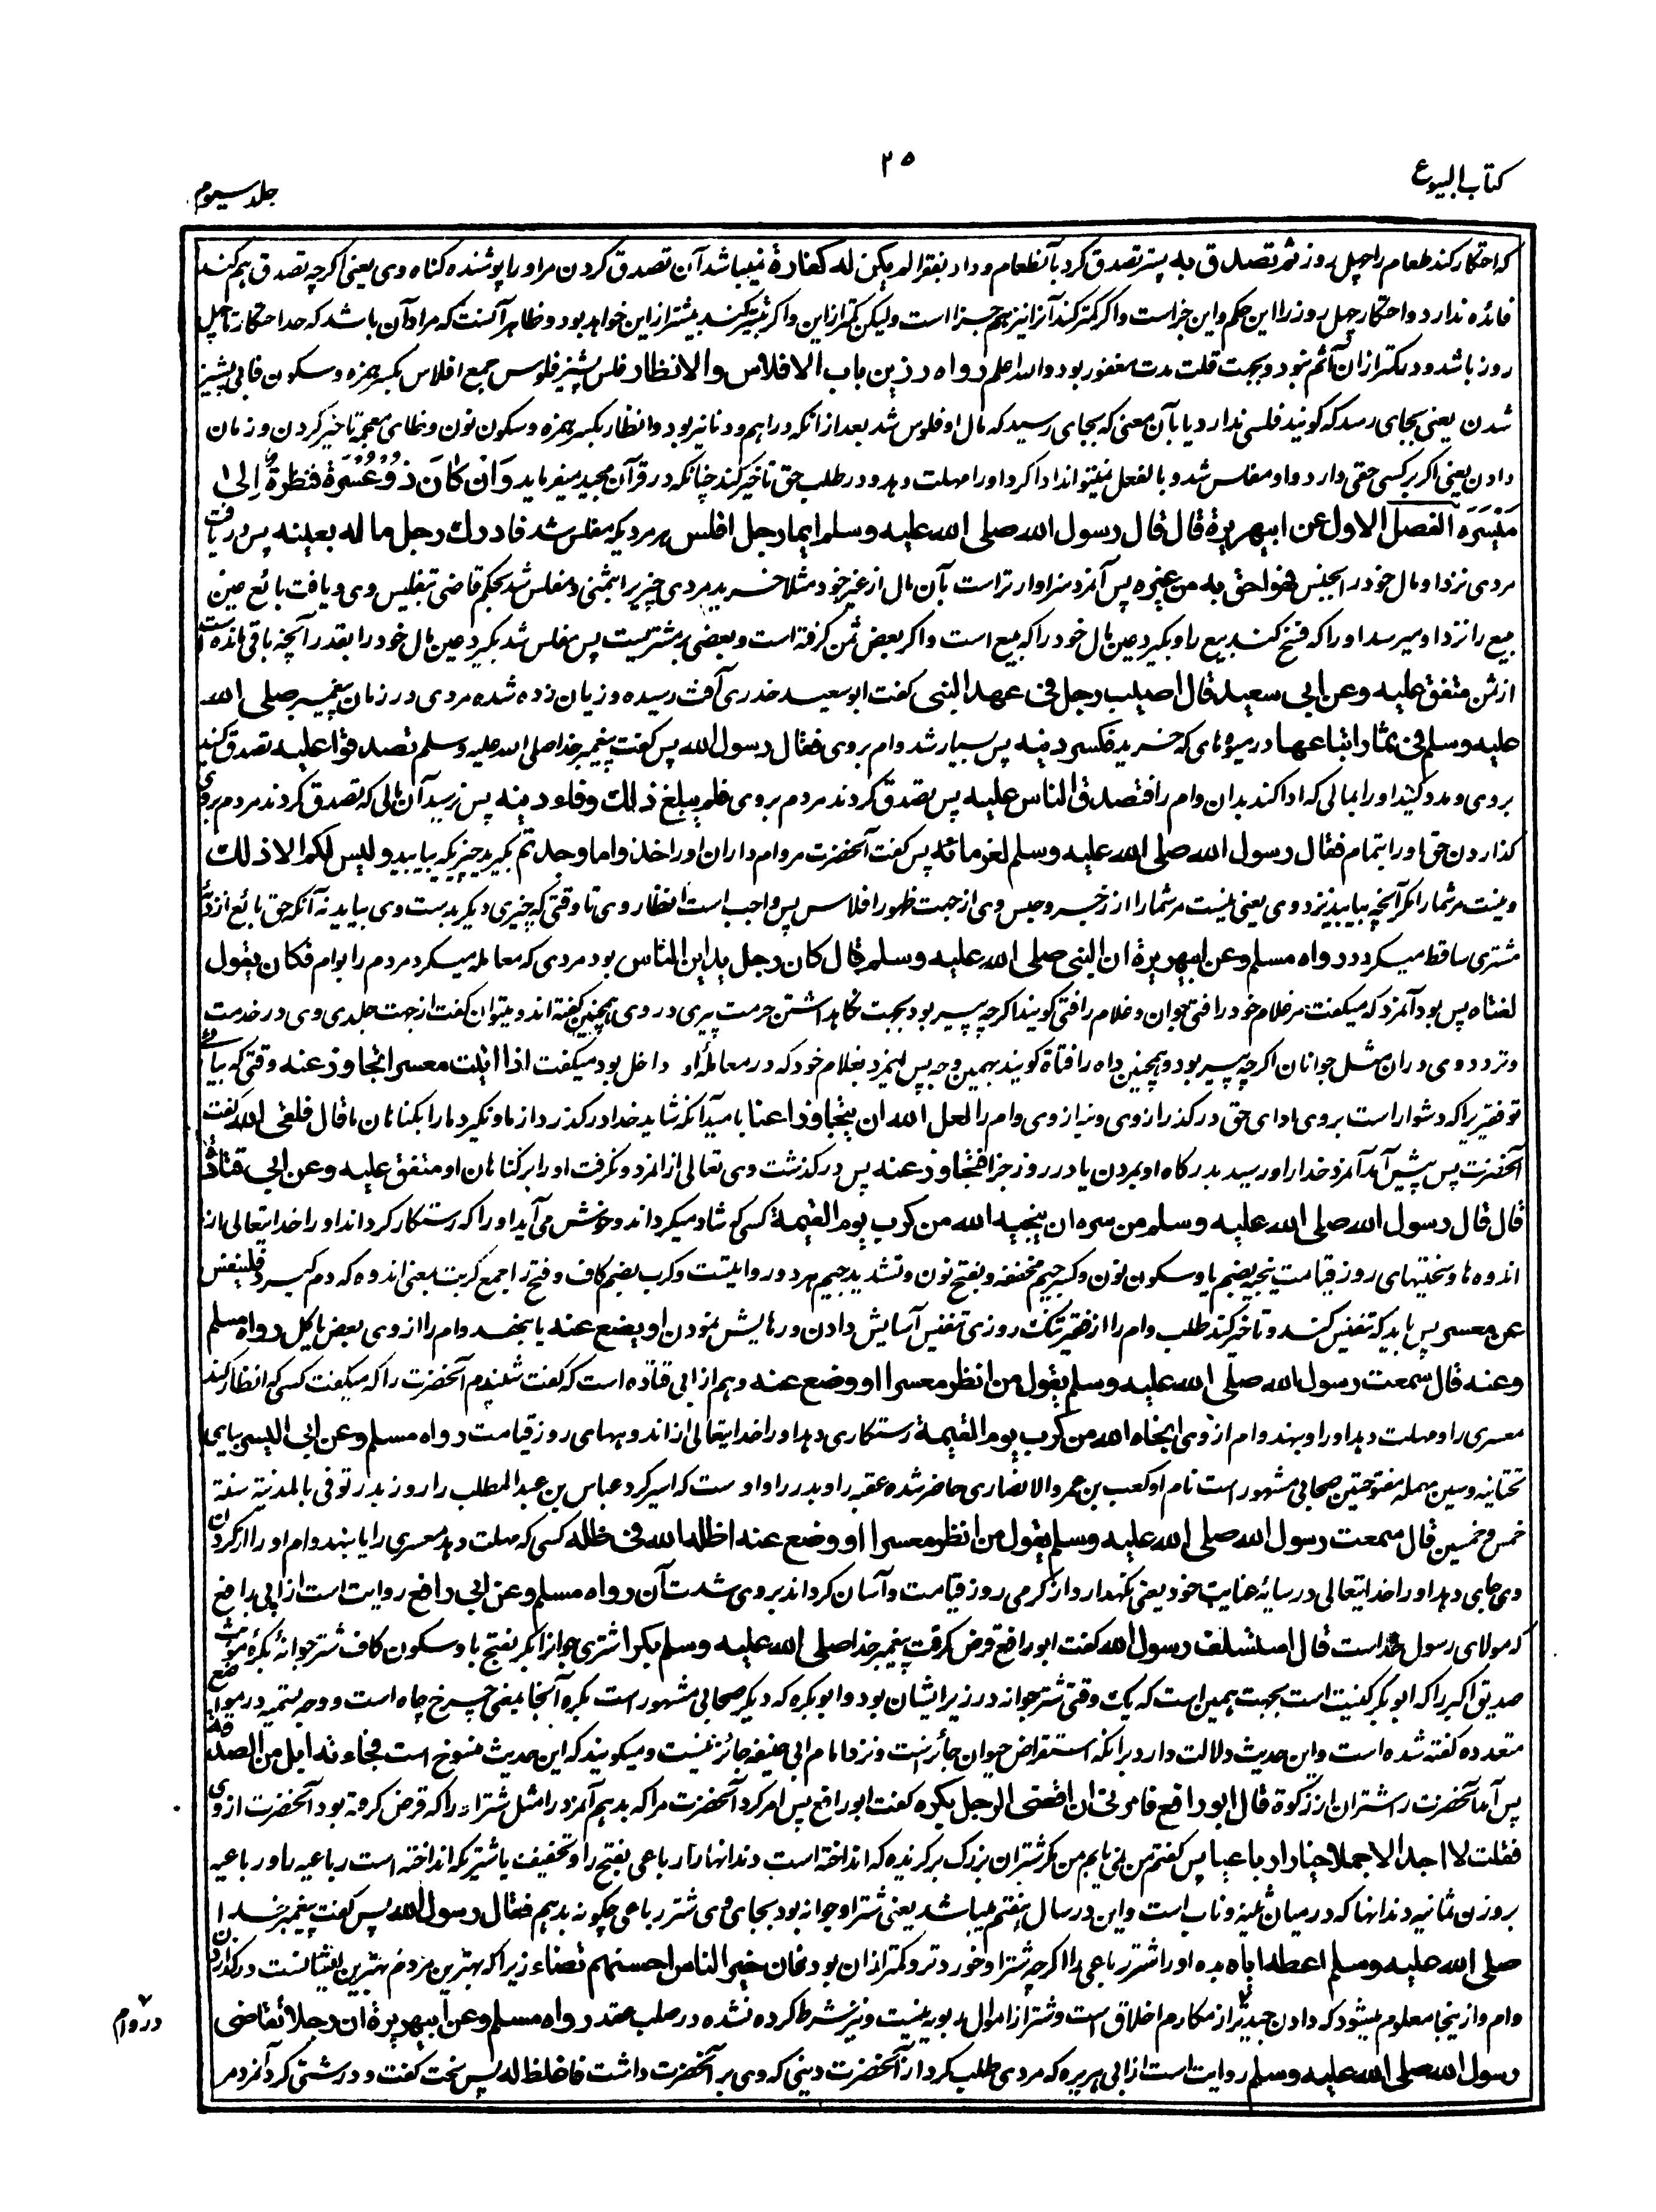 کتاب البیوع
۲۵
جلد سیوم
که احتکار کند طعام را چهل روز ثم تصدق به پستر تصدق کرد بآنطعام و داد بفقرا لم یکن له کفارة نمیباشد آن تصدق کردن مر او را پوشنده کناه وی یعنی اکرچه تصدق هم کند
فائده ندارد و احتکار چهل روز را این حکم و این جزاست و اکر کمتر کند آنرا نیز هم جزا است ولیکن کمتر ازین و اکر بیشتر کند بیشتر از این خواهد بود و ظاهر آنست که مراد آن باشد که حد احتکار تا چهل
روز باشد و در کمتر ازان آثم نبود و بجهت قلت مدت مغفور بود والله اعلم رواه رزین باب الافلاس والانظار فلس پشیز فلوس جمع افلاس بکسر همزه و سکون فا بی پشیز
شدن یعنی بجای رسد که کویند فلسی ندارد یا بآن معنی که بجای رسید که مال او فلوس شد بعد ازانکه دراهم و دنانیر بود و انظار بکسر همزه و سکون نون و ظای معجمه تاخیر کردن و زمان
دادن یعنی اکر بر کسی حقی دارد و او مفلس شد و بالفعل نمیتواند ادا کرد او را مهلت دهد و در طلب حق تاخیر کند چنانکه در قرآن مجید میفرماید وَاِنْ كَانَ ذُوْ عُسْرَةٍ فَنَظِرَةٌ اِلٰى
مَيْسَرَةٍ الفصل الاول عن ابیهریرة قال قال رسول الله صلی الله علیه وسلم ایما رجل افلس هر مردیکه مفلس شد فادرك رجل ماله بعینه پس دریافت
مردی نزد او مال خود را بجنس فهو احق به من غیره پس آنمرد سزاوارتر است بآن مال از غیر خود مثلا خرید مردی چیزیرا بثمنی و مفلس شد بحکم قاضی بتفلیس وی و یافت بائع عین
مبیع را نزد او میرسد او را که فسخ کند بیع را و بکیرد عین مال خود را که مبیع است و اکر بعض ثمن کرفته است و بعضی بر مشتریست پس مفلس شد بکیرد عین مال خود را بقدر آنچه باقی مانده است
از ثمن متفق علیه وعن ابی سعید قال اصیب رجل فی عهد النبی کفت ابو سعید خدری آفت رسیده و زیان زده شده مردی در زمان پیغمبر صلی الله
علیه وسلم فی ثمار ابتاعها در میوه های که خرید فکثر دینه پس بسیار شد وام بروی فقال رسول الله پس کفت پیغمبر خدا صلی الله علیه وسلم تصدقوا علیه تصدق کنید
بروی و مدد کنید او را بمالی که ادا کند بدان وام را فتصدق الناس علیه پس تصدق کردند مردم بروی فلم یبلغ ذلك وفاء دینه پس نرسید آن مالی که تصدق کردند مردم بروی
کذاردن حق او را بتمام فقال رسول الله صلی الله علیه وسلم لغرمائه پس کفت آنحضرت مر وام داران او را خذوا ما وجدتم بکیرید چیزیکه بیابید ولیس لکم الا ذلك
و نیست مر شما را مکر آنچه بیابید نزد وی یعنی نیست مر شما را زجر و حبس وی از جهت ظهور افلاس پس واجب است انظار وی تا وقتی که چیزی دیکر بدست وی بیاید نه آنکه حق بائع از ذمه
مشتری ساقط میکردد رواه مسلم وعن ابیهریرة ان النبی صلی الله علیه وسلم قال کان رجل یداین الناس بود مردی که معامله میکرد مردم را بوام فکان یقول
لفتاه پس بود آنمرد که میکفت مر غلام خود را فتی جوان و غلام را فتی کویند اکرچه پیر بود بجهت نکاهداشتن حرمت پیری در وی همچنین کفته اند و میتوان کفت از جهت جلدی وی در خدمت
و تردد وی دران مثل جوانان اکرچه پیر بود و همچنین داه را فتاة کویند بهمین وجه پس اینمرد بغلام خود که در معامله او داخل بود میکفت اذا اتیت معسرا تجاوز عنه وقتی که بیائی
تو فقیریرا که دشوار است بروی ادای حق در کذر از وی و بیا از وی وام را لعل الله ان یتجاوز عنا بامید آنکه شاید خدا در کذرد از ما و نکیرد ما را بکناهان ما قال فلقی الله کفت
آنحضرت پس پیش آمد آنمرد خدا را و رسید بدرکاه او بمردن یا در روز جزا فتجاوز عنه پس در کذشت وی تعالی از انمرد و نکرفت او را بر کناهان او متفق علیه وعن ابی قتادة
قال قال رسول الله صلی الله علیه وسلم من سره ان ینجیه الله من کرب یوم القیمة کسی که شاد میکرداند و خوش می آید او را که رستکار کرداند او را خدایتعالی از
اندوه ها و سختیهای روز قیامت ینجیه بضم یا و سکون نون و کسر جیم مخففه و بفتح نون و تشدید جیم هر دو روایتست و کرب بضم کاف و فتح را جمع کربت بمعنی اندوه که دم کیرد فلینفس
عن معسر پس باید که تنفیس کند و تاخیر کند طلب وام را از فقیر تنک روزی تنفیس آسایش دادن و رهایش نمودن او یضع عنه یا بنهد وام را از وی بعض یا کل رواه مسلم
وعنه قال سمعت رسول الله صلی الله علیه وسلم یقول من انظر معسرا او وضع عنه و هم از ابی قتاده است که کفت شنیدم آنحضرت را که میکفت کسی که انظار کند
معسری را و مهلت دهد او را و بنهد وام از وی انجاه الله من کرب یوم القیمة رستکاری دهد او را خدایتعالی از اندوههای روز قیامت رواه مسلم وعن ابی الیسر بیای
تحتانیه و سین مهمله مفتوحتین صحابی مشهور است نام او کعب بن عمرو الانصاری حاضر شده عقبه را و بدر را و اوست که اسیر کرد عباس بن عبد المطلب را روز بدر توفی بالمدینة سنة
خمس و خمسین قال سمعت رسول الله صلی الله علیه وسلم یقول من انظر معسرا او وضع عنه اظله الله فی ظله کسی که مهلت دهد معسری را یا بنهد وام او را از کردن
وی جای دهد او را خدایتعالی در سایه عنایت خود یعنی نکهدارد از کرمی روز قیامت و آسان کرداند بروی شدت آن رواه مسلم وعن ابی رافع روایت است از ابی رافع
که مولای رسول خداست قال استسلف رسول الله کفت ابو رافع قرض کرفت پیغمبر خدا صلی الله علیه وسلم بکرا شتری جوانرا بکر بفتح با و سکون کاف شتر جوانه بکره مؤنث
صدیق اکبر را که ابوبکر کنیت است بجهت همین است که یک وقتی شتر جوانه در زیر ایشان بود و ابوبکره که دیکر صحابی مشهور است بکره آنجا بمعنی چرخ چاه است و وجه تسمیه در مواضع
متعدده کفته شده است و این حدیث دلالت دارد برانکه استقراض حیوان جائز است و نزد امام ابی حنیفه جائز نیست و میکویند که این حدیث منسوخ است فجاءته ابل من الصدقة
پس آمد آنحضرت را شتران از زکوة قال ابو رافع فامرنی ان اقضی الرجل بکره کفت ابو رافع پس امر کرد آنحضرت مرا که بدهم آنمرد را مثل شتر او را که قرض کرفته بود آنحضرت از وی
فقلت لا اجد الا جملا خیارا رباعیا پس کفتم من نمی یابم من مکر شتران بزرک برکزیده که انداخته است دندانها را رباعی بفتح را و تخفیف یا شتریکه انداخته است رباعیه را و رباعیه
بر وزن ثمانیه دندانها که در میان ثنیه و ناب است و این در سال هفتم میباشد یعنی شتر او جوانه بود بجای وی شتر رباعی چکونه بدهم فقال رسول الله پس کفت پیغمبر خدا
صلی الله علیه وسلم اعطه ایاه بده او را شتر رباعی را اکرچه شتر او خوردتر و کمتر ازان بود فان خیر الناس احسنهم قضاء زیرا که بهترین مردم بهترین ایشانست در کذاردن
وام و ازینجا معلوم میشود که دادن جیدتر از مکارم اخلاق است و شتر از اموال ربویه نیست و نیز شرط کرده نشده در صلب عقد رواه مسلم وعن ابیهریرة ان رجلا تقاضی
در وام
رسول الله صلی الله علیه وسلم روایت است از ابی هریره که مردی طلب کرد از آنحضرت دینی که وی بر آنحضرت داشت فاغلظ له پس سخت کفت و درشتی کرد آنمرد مر